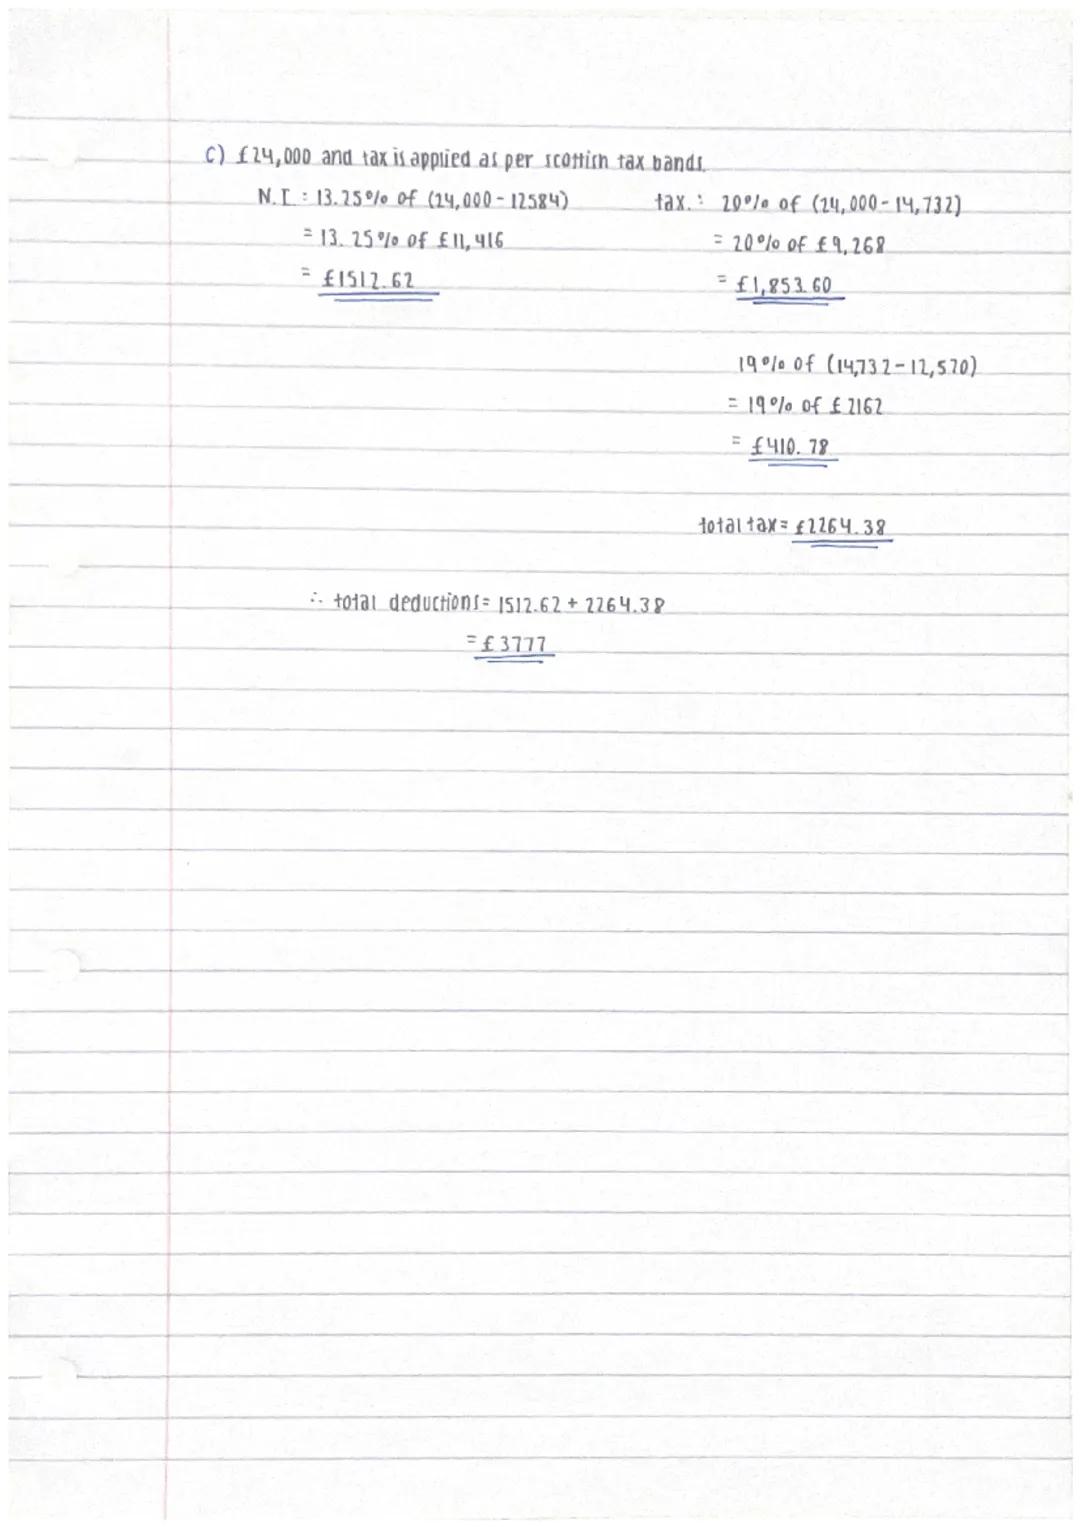 C) £24,000 and tax is applied as per scottish tax bands.
N.I : 13.25% of (24,000 - 12584)
= 13.25% of £11,416
= £1512.62
tax.: 20% of (24,000 - 14,732)
= 20% of £9,268
= £1,853.60
19% of (14,732 - 12,570)
= 19% of £2162
= £410.78
total tax = £2264.38
∴ total deductions = 1512.62 + 2264.38
= £3777